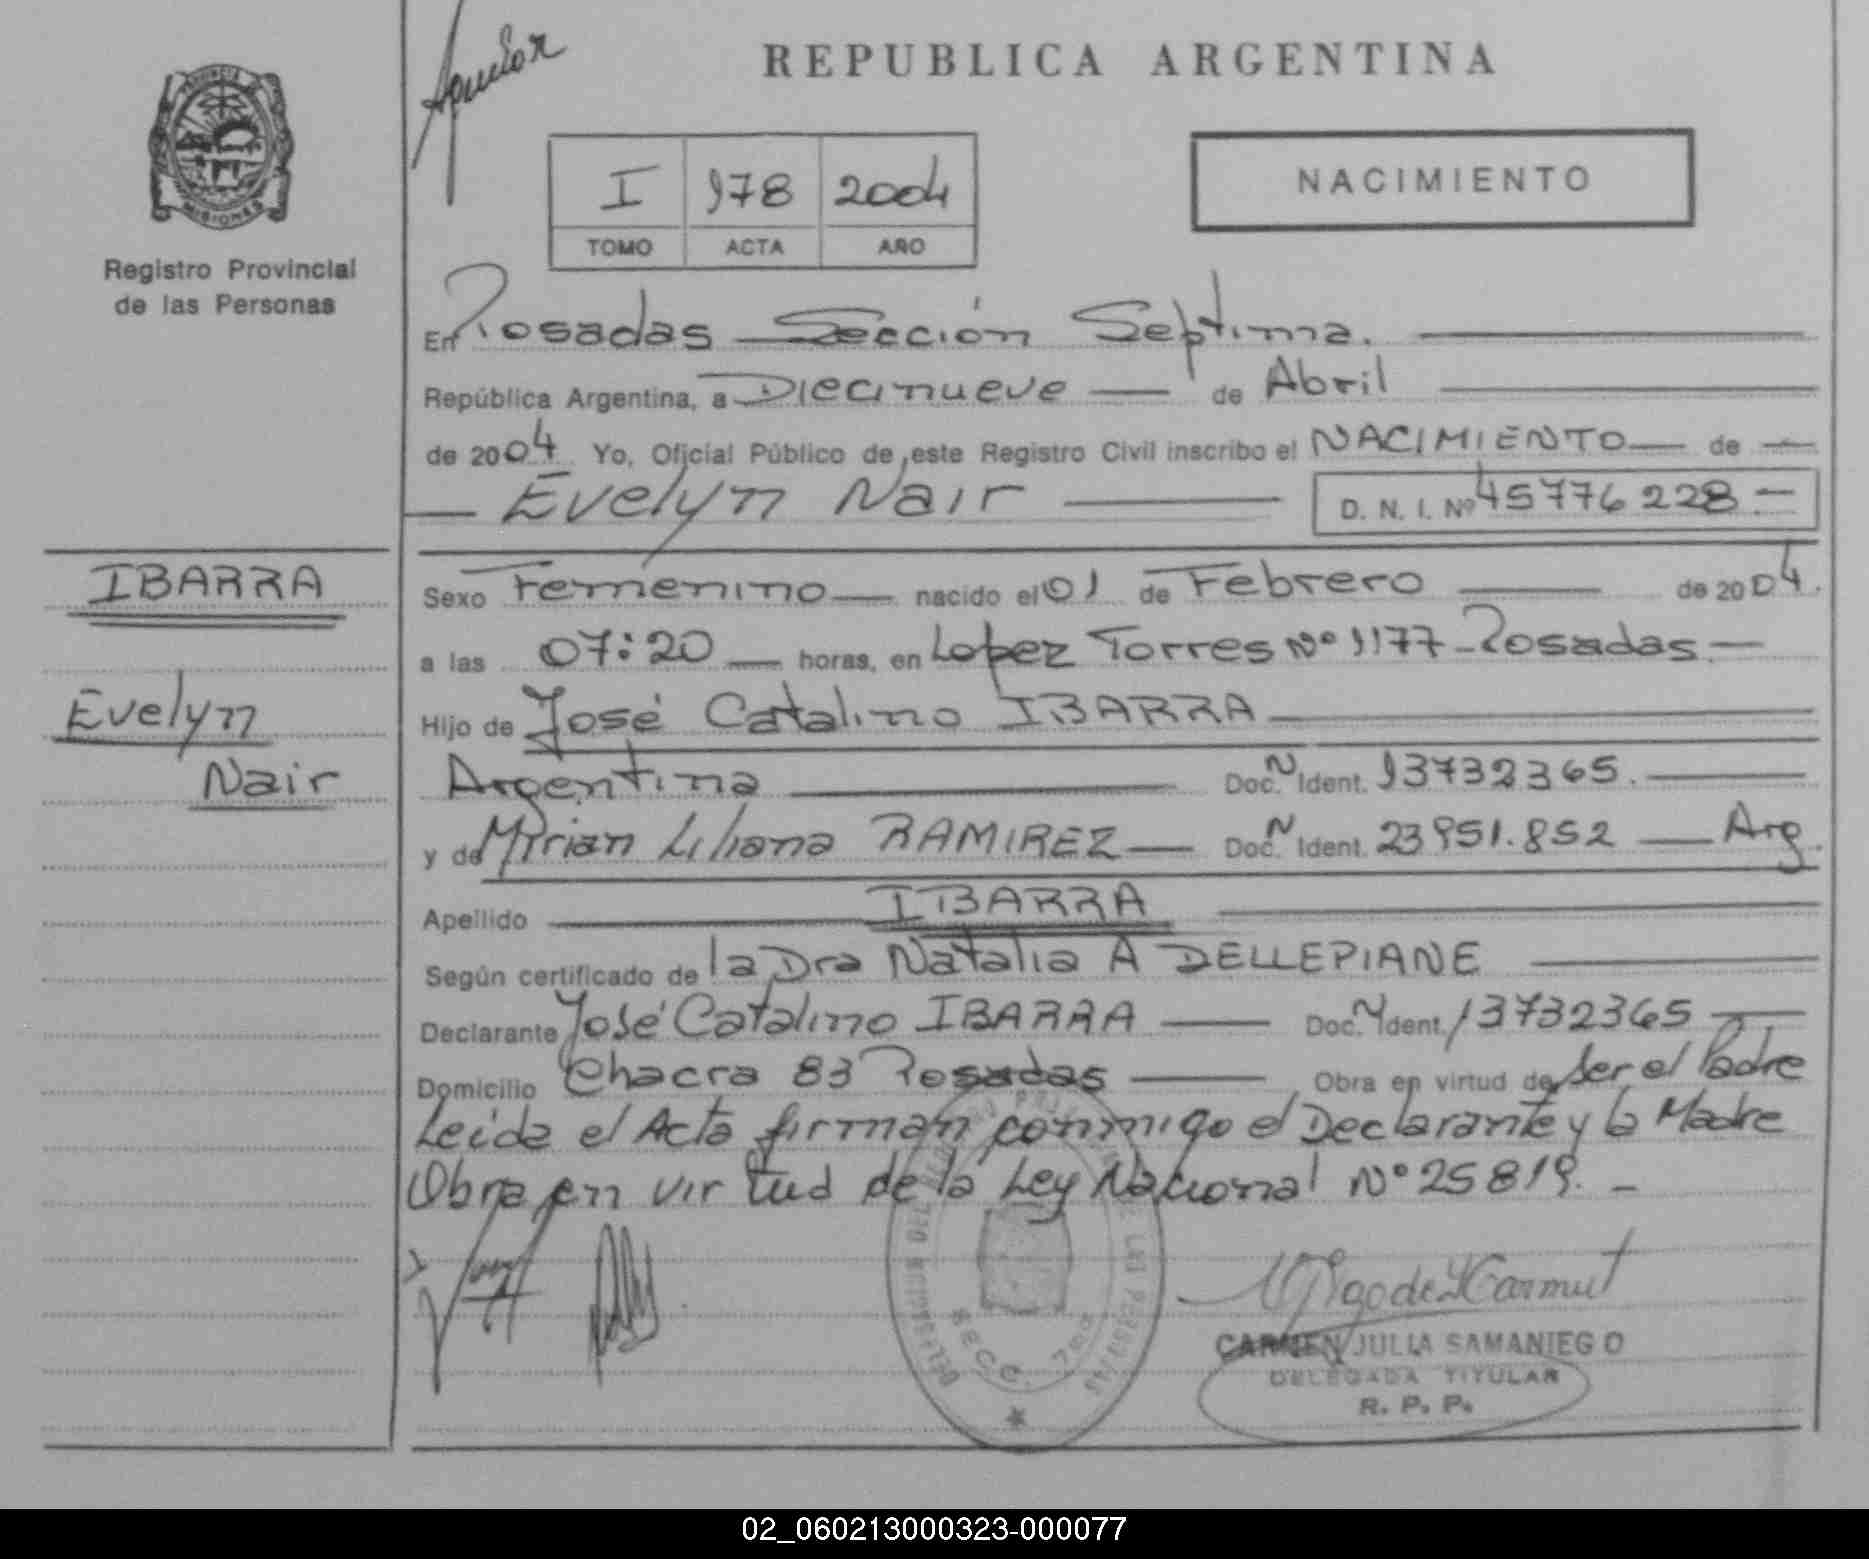 Aguilar
REPUBLICA ARGENTINA
PROVINCIA DE
MISIONES
Registro Provincial
de las Personas
I 178 2004
TOMO ACTA AÑO
NACIMIENTO
En Posadas Sección Septima.
República Argentina, a Diecinueve de Abril
de 2004 Yo, Oficial Público de este Registro Civil inscribo el NACIMIENTO de
Evelyn Nair D. N. I. Nº 45776228
IBARRA
Evelyn
Nair
Sexo Femenino nacido el 01 de Febrero de 2004.
a las 07:20 horas, en Lopez Torres Nº 1177-Posadas.
Hijo de José Catalino IBARRA
Argentina Doc. N Ident. 13732365.
y de Mirian Liliana RAMIREZ Doc. N Ident. 23951.852 Arg.
Apellido IBARRA
Según certificado de la Dra Natalia A DELLEPIANE
Declarante José Catalino IBARRA Doc. N Ident. 13732365
Domicilio Chacra 83 Posadas Obra en virtud de Ser el Padre
Leida el Acta firman conmigo el Declarante y la Madre
Obra en virtud de la Ley Nacional Nº 25819.
SECC. 7ma
CARMEN JULIA SAMANIEGO
DELEGADA TITULAR
R. P. P.
02_060213000323-000077